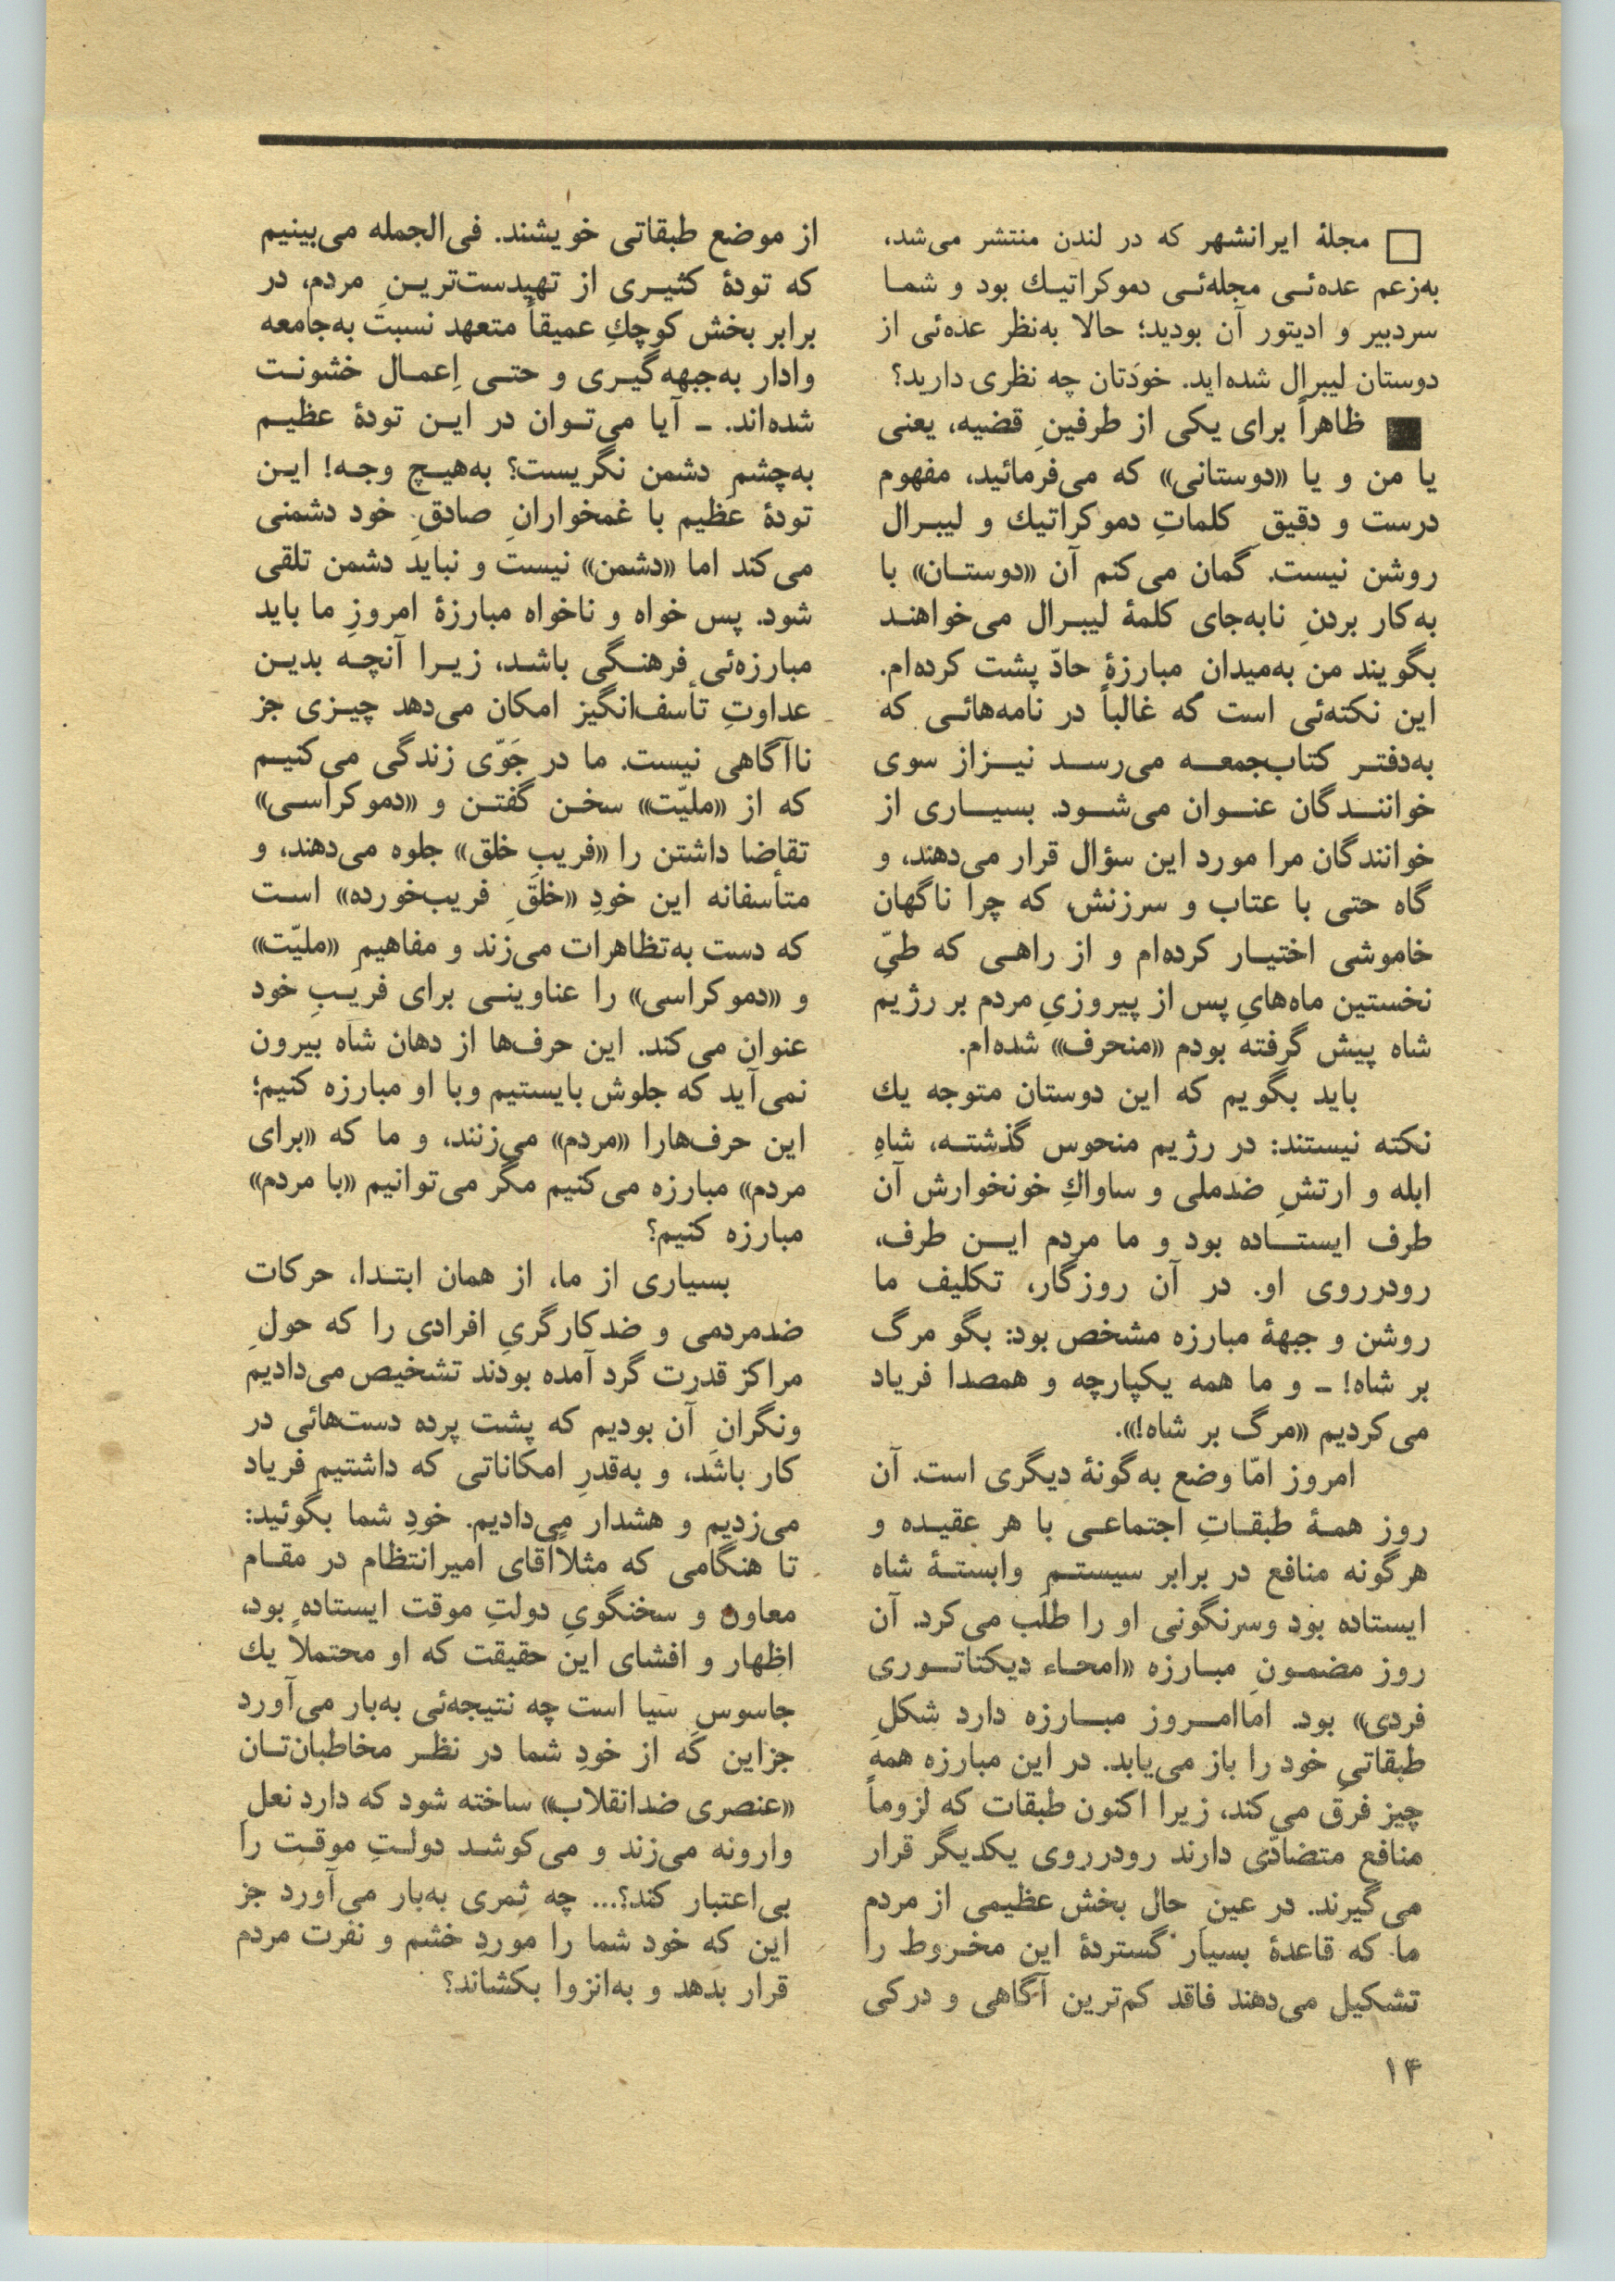 □ مجلهٔ ایرانشهر که در لندن منتشر می‌شد،
به‌زعم عده‌ئی مجله‌ئی دموکراتیك بود و شما
سردبیر و ادیتور آن بودید؛ حالا به‌نظر عده‌ئی از
دوستان لیبرال شده‌اید. خودتان چه نظری دارید؟
■ ظاهراً برای یکی از طرفینِ قضیه، یعنی
یا من و یا «دوستانی» که می‌فرمائید، مفهوم
درست و دقیقِ کلماتِ دموکراتیك و لیبرال
روشن نیست. گمان می‌کنم آن «دوستان» با
به‌کار بردنِ نابه‌جای کلمهٔ لیبرال می‌خواهند
بگویند من به‌میدانِ مبارزهٔ حادّ پشت کرده‌ام.
این نکته‌ئی است که غالباً در نامه‌هائی که
به‌دفتر کتاب‌جمعه می‌رسد نیزاز سوی
خوانندگان عنوان می‌شود. بسیاری از
خوانندگان مرا مورد این سؤال قرار می‌دهند، و
گاه حتی با عتاب و سرزنش، که چرا ناگهان
خاموشی اختیار کرده‌ام و از راهی که طیِّ
نخستین ماه‌هایِ پس از پیروزیِ مردم بر رژیم
شاه پیش گرفته بودم «منحرف» شده‌ام.
باید بگویم که این دوستان متوجه یك
نکته نیستند: در رژیم منحوس گذشته، شاهِ
ابله و ارتشِ ضدملی و ساواكِ خونخوارش آن
طرف ایستاده بود و ما مردم این طرف،
رودرروی او. در آن روزگار، تکلیف ما
روشن و جبههٔ مبارزه مشخص بود: بگو مرگ
بر شاه! ـ و ما همه یکپارچه و همصدا فریاد
می‌کردیم «مرگ بر شاه!».
امروز امّا وضع به‌گونهٔ دیگری است. آن
روز همهٔ طبقاتِ اجتماعی با هر عقیده و
هرگونه منافع در برابر سیستمِ وابستهٔ شاه
ایستاده بود وسرنگونی او را طلب می‌کرد. آن
روز مضمونِ مبارزه «امحاء دیکتاتوری
فردی» بود. اماامروز مبارزه دارد شکلِ
طبقاتیِ خود را باز می‌یابد. در این مبارزه همه
چیز فرق می‌کند، زیرا اکنون طبقات که لزوماً
منافع متضادّی دارند رودرروی یکدیگر قرار
می‌گیرند. در عینِ حال بخش عظیمی از مردم
ما که قاعدهٔ بسیار گستردهٔ این مخروط را
تشکیل می‌دهند فاقد کم‌ترین آگاهی و درکی
از موضع طبقاتی خویشند. فی‌الجمله می‌بینیم
که تودهٔ کثیری از تهیدست‌ترینِ مردم، در
برابر بخش کوچكِ عمیقاً متعهد نسبت به‌جامعه
وادار به‌جبهه‌گیری و حتی اِعمال خشونت
شده‌اند. ـ آیا می‌توان در این تودهٔ عظیم
به‌چشمِ دشمن نگریست؟ به‌هیچ وجه! این
تودهٔ عظیم با غمخوارانِ صادقِ خود دشمنی
می‌کند اما «دشمن» نیست و نباید دشمن تلقی
شود. پس خواه و ناخواه مبارزهٔ امروزِ ما باید
مبارزه‌ئی فرهنگی باشد، زیرا آنچه بدین
عداوتِ تأسف‌انگیز امکان می‌دهد چیزی جز
ناآگاهی نیست. ما در جَوّی زندگی می‌کنیم
که از «ملیّت» سخن گفتن و «دموکراسی»
تقاضا داشتن را «فریبِ خلق» جلوه می‌دهند، و
متأسفانه این خودِ «خلقِ فریب‌خورده» است
که دست به‌تظاهرات می‌زند و مفاهیمِ «ملیّت»
و «دموکراسی» را عناوینی برای فریبِ خود
عنوان می‌کند. این حرف‌ها از دهان شاه بیرون
نمی‌آید که جلوش بایستیم وبا او مبارزه کنیم؛
این حرف‌هارا «مردم» می‌زنند، و ما که «برای
مردم» مبارزه می‌کنیم مگر می‌توانیم «با مردم»
مبارزه کنیم؟
بسیاری از ما، از همان ابتدا، حرکات
ضدمردمی و ضدکارگریِ افرادی را که حولِ
مراکز قدرت گرد آمده بودند تشخیص می‌دادیم
ونگرانِ آن بودیم که پشت پرده دست‌هائی در
کار باشد، و به‌قدرِ امکاناتی که داشتیم فریاد
می‌زدیم و هشدار می‌دادیم. خودِ شما بگوئید:
تا هنگامی که مثلاًآقای امیرانتظام در مقام
معاون و سخنگویِ دولتِ موقت ایستاده بود،
اظهار و افشای این حقیقت که او محتملاً یك
جاسوسِ سیا است چه نتیجه‌ئی به‌بار می‌آورد
جزاین که از خودِ شما در نظر مخاطبان‌تان
«عنصری ضدانقلاب» ساخته شود که دارد نعلِ
وارونه می‌زند و می‌کوشد دولتِ موقت را
بی‌اعتبار کند؟... چه ثمری به‌بار می‌آورد جز
این که خود شما را موردِ خشم و نفرت مردم
قرار بدهد و به‌انزوا بکشاند؟
۱۴